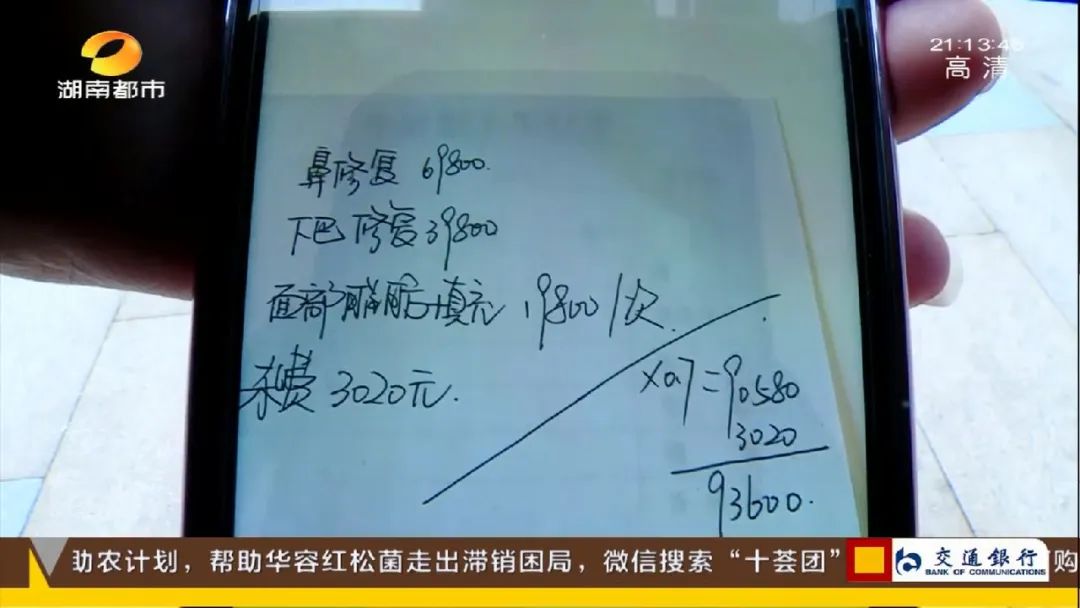 湖南都市
21:13:45
高清
鼻修复 69800.
下巴修复39800
面部脂肪填充 19800/次.
杂费 3020元.
×0.7=90580
3020
93600.
助农计划，帮助华容红松菌走出滞销困局，微信搜索“十荟团”
交通銀行
BANK OF COMMUNICATIONS
购